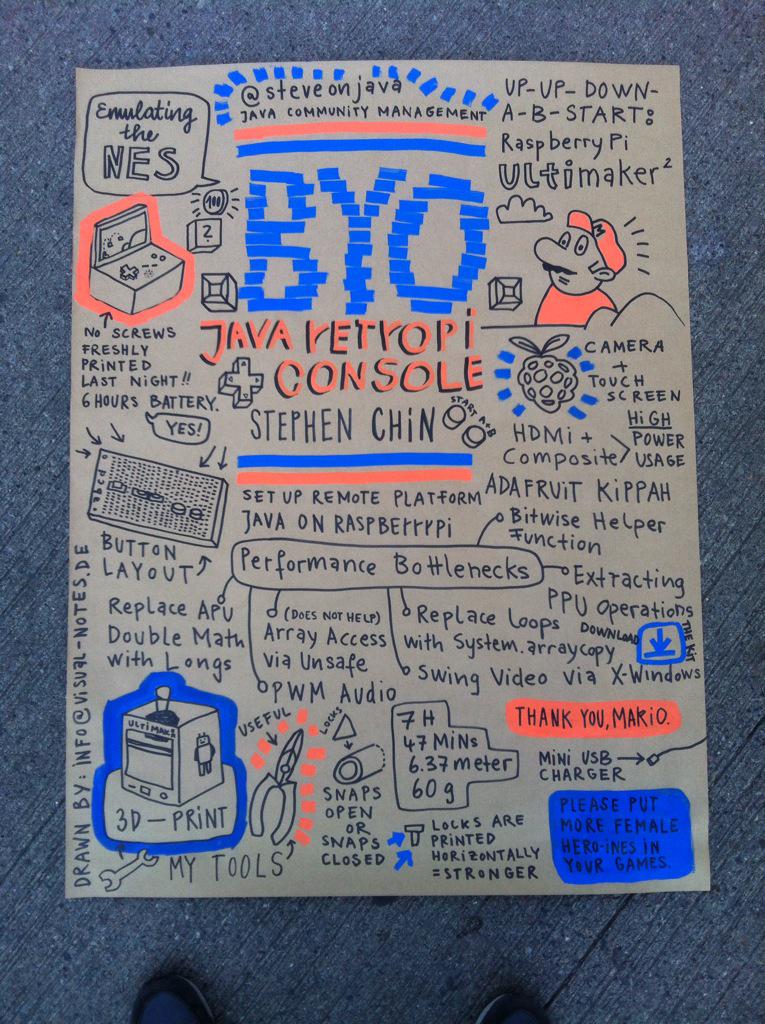 Emulating
the
NES
@steveonjava
JAVA COMMUNITY MANAGEMENT
UP-UP-DOWN-
A-B-START:
Raspberry Pi
Ultimaker²
100
?
M
BYO
JAVA retropi
CONSOLE
STEPHEN CHiN
START A+B
NO SCREWS
FRESHLY
PRINTED
LAST NIGHT!!
6 HOURS BATTERY.
YES!
CAMERA
+
TOUCH
SCREEN
HDMi +
Composite
HiGH
POWER
USAGE
ADAFRUiT KiPPAH
abcd
BUTTON
LAYOUT
SET UP REMOTE PLATFORM
JAVA ON RASPBERRYPi
Performance Bottlenecks
Bitwise Helper
Function
Extracting
PPU Operations
Replace APU
Double Math
with Longs
(DOES NOT HELP)
Array Access
via Unsafe
PWM Audio
Replace Loops
with System.arraycopy
Swing Video via X-Windows
DOWNLOAD
THE KiT
ULTIMAK
3D-PRiNT
MY TOOLS
USEFUL
LOCKS
SNAPS
OPEN
OR
SNAPS
CLOSED
7 H
47 MiNs
6.37 meter
60 g
LOCKS ARE
PRiNTED
HORiZONTALLY
=STRONGER
THANK YOU, MARiO.
MiNi USB
CHARGER
PLEASE PUT
MORE FEMALE
HERO-iNES iN
YOUR GAMES.
DRAWN BY: INFO@VISUAL-NOTES.DE